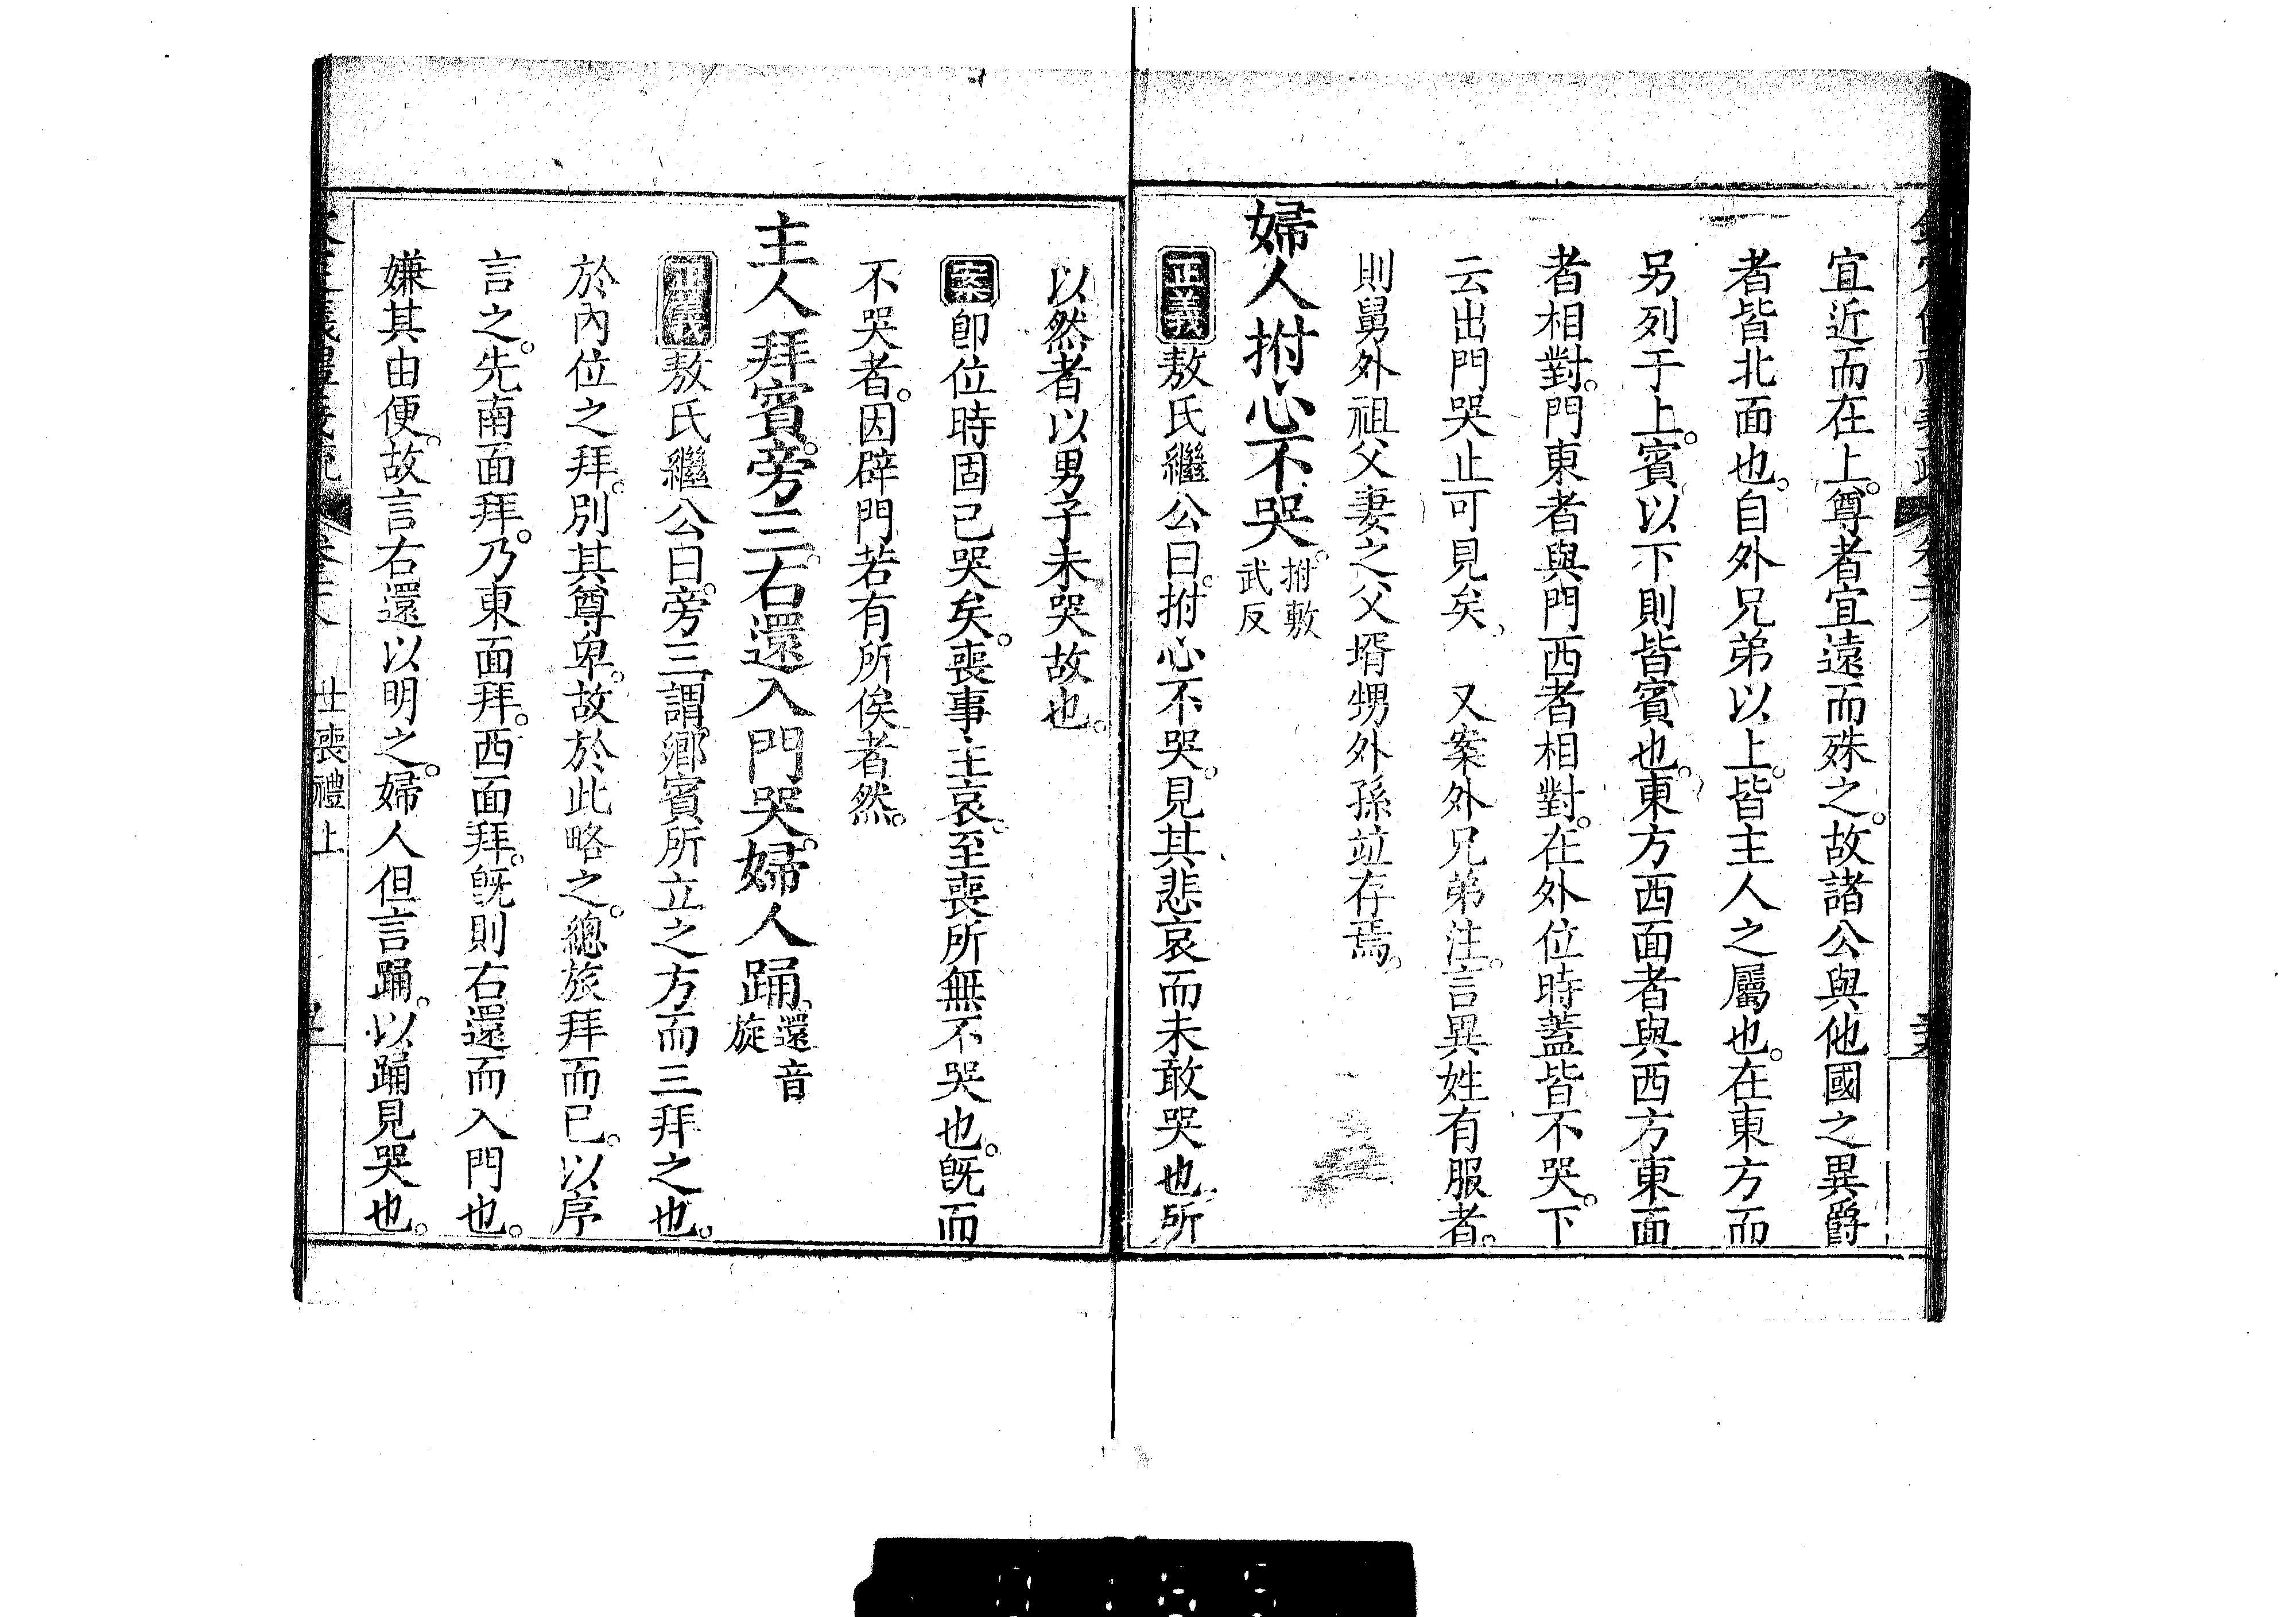 宜近而在上。尊者宜遠而殊之。故諸公與他國之異爵
者皆北面也。自外兄弟以上。皆主人之屬也。在東方而
另列于上。賓以下則皆賓也。東方西面者與西方東面
者相對。門東者與門西者相對。在外位時蓋皆不哭。下
云出門哭止可見矣、　又案外兄弟注。言異姓有服者。
則舅外祖父妻之父壻甥外孫竝存焉。
婦人拊心不哭。拊敷武反
正義敖氏繼公曰。拊心不哭。見其悲哀而未敢哭也。所
以然者以男子未哭故也。
案卽位時固已哭矣。喪事主哀。至喪所無不哭也。旣而
不哭者。因辟門若有所俟者然。
主人拜賓。旁三。右還入門哭。婦人踊。還音旋
正義敖氏繼公曰。旁三。謂鄉賓所立之方而三拜之也。
於內位之拜。別其尊卑。故於此略之。總旅拜而已。以序
言之。先南面拜。乃東面拜。西面拜。旣則右還而入門也。
嫌其由便。故言右還以明之。婦人但言踊。以踊見哭也。
士喪禮上